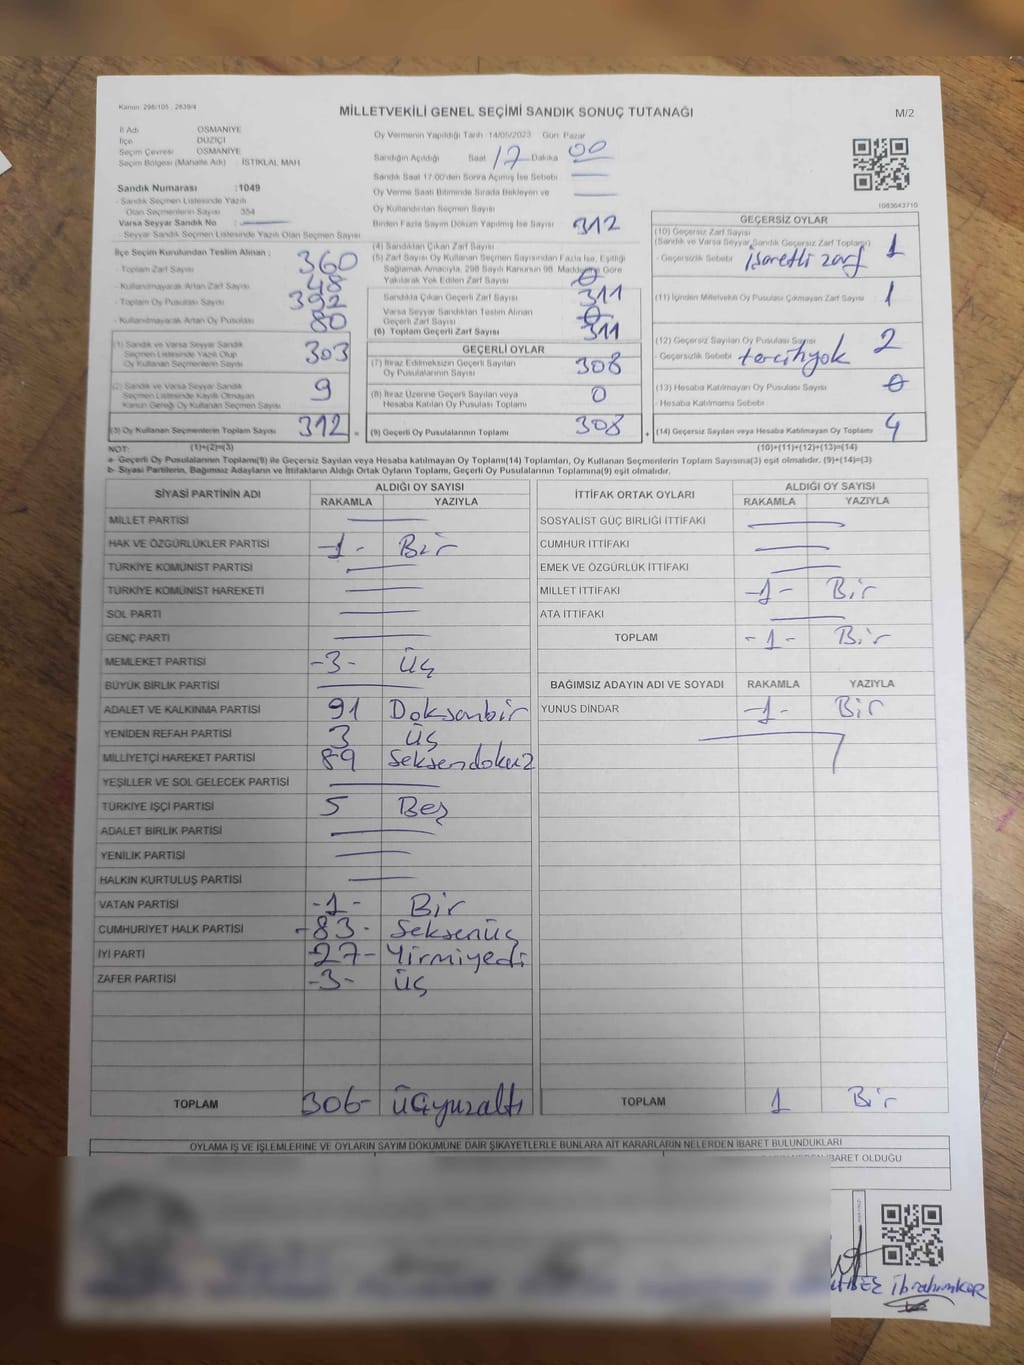 Kanun: 298/105 , 2839/4
MİLLETVEKİLİ GENEL SEÇİMİ SANDIK SONUÇ TUTANAĞI
M/2
İl Adı OSMANİYE
İlçe DÜZİÇİ
Seçim Çevresi OSMANİYE
Seçim Bölgesi (Mahalle Adı) İSTİKLAL MAH.
Sandık Numarası :1049
- Sandık Seçmen Listesinde Yazılı
Olan Seçmenlerin Sayısı 354
Varsa Seyyar Sandık No :
- Seyyar Sandık Seçmen Listesinde Yazılı Olan Seçmen Sayısı
Oy Vermenin Yapıldığı Tarih :14/05/2023 Gün Pazar
Sandığın Açıldığı Saat 17 Dakika 00
Sandık Saat 17:00'den Sonra Açılmış İse Sebebi
Oy Verme Saati Bitiminde Sırada Bekleyen ve
Oy Kullandırılan Seçmen Sayısı
Birden Fazla Sayım Döküm Yapılmış İse Sayısı
1083643710
İlçe Seçim Kurulundan Teslim Alınan ;
- Toplam Zarf Sayısı 360
- Kullanılmayarak Artan Zarf Sayısı 48
- Toplam Oy Pusulası Sayısı 392
- Kullanılmayarak Artan Oy Pusulası 80
(1) Sandık ve Varsa Seyyar Sandık
Seçmen Listesinde Yazılı Olup
Oy Kullanan Seçmenlerin Sayısı 303
(2) Sandık ve Varsa Seyyar Sandık
Seçmen Listesinde Kayıtlı Olmayan
Kanun Gereği Oy Kullanan Seçmen Sayısı 9
(3) Oy Kullanan Seçmenlerin Toplam Sayısı 312 =
(4) Sandıktan Çıkan Zarf Sayısı 312
(5) Zarf Sayısı Oy Kullanan Seçmen Sayısından Fazla İse, Eşitliği
Sağlamak Amacıyla, 298 Sayılı Kanunun 98. Maddesine Göre
Yakılarak Yok Edilen Zarf Sayısı 0
Sandıkta Çıkan Geçerli Zarf Sayısı 311
Varsa Seyyar Sandıktan Teslim Alınan
Geçerli Zarf Sayısı 0
(6) Toplam Geçerli Zarf Sayısı 311
GEÇERLİ OYLAR
(7) İtiraz Edilmeksizin Geçerli Sayılan
Oy Pusulalarının Sayısı 308
(8) İtiraz Üzerine Geçerli Sayılan veya
Hesaba Katılan Oy Pusulası Toplamı 0
(9) Geçerli Oy Pusulalarının Toplamı 308 +
GEÇERSİZ OYLAR
(10) Geçersiz Zarf Sayısı
(Sandık ve Varsa Seyyar Sandık Geçersiz Zarf Toplamı) 1
- Geçersizlik Sebebi işaretli zarf
(11) İçinden Milletvekili Oy Pusulası Çıkmayan Zarf Sayısı 1
(12) Geçersiz Sayılan Oy Pusulası Sayısı 2
- Geçersizlik Sebebi tercihyok
(13) Hesaba Katılmayan Oy Pusulası Sayısı 0
- Hesaba Katılmama Sebebi
(14) Geçersiz Sayılan veya Hesaba Katılmayan Oy Toplamı 4
NOT: (1)+(2)=(3) (10)+(11)+(12)+(13)=(14)
a- Geçerli Oy Pusulaları(9) ile Geçersiz Sayılan veya Hesaba katılmayan Oy Toplamı(14) Toplamları, Oy Kullanan Seçmenlerin Toplam Sayısına(3) eşit olmalıdır. (9)+(14)=(3)
b- Siyasi Partilerin, Bağımsız Adayların ve İttifakların Aldığı Ortak Oyların Toplamı, Geçerli Oy Pusulalarının Toplamına(9) eşit olmalıdır.
SİYASİ PARTİNİN ADI ALDIĞI OY SAYISI
RAKAMLA YAZIYLA
MİLLET PARTİSİ
HAK VE ÖZGÜRLÜKLER PARTİSİ -1- Bir
TÜRKİYE KOMÜNİST PARTİSİ
TÜRKİYE KOMÜNİST HAREKETİ
SOL PARTİ
GENÇ PARTİ
MEMLEKET PARTİSİ -3- üç
BÜYÜK BİRLİK PARTİSİ
ADALET VE KALKINMA PARTİSİ 91 Doksanbir
YENİDEN REFAH PARTİSİ 3 üç
MİLLİYETÇİ HAREKET PARTİSİ 89 Seksendokuz
YEŞİLLER VE SOL GELECEK PARTİSİ
TÜRKİYE İŞÇİ PARTİSİ 5 Beş
ADALET BİRLİK PARTİSİ
YENİLİK PARTİSİ
HALKIN KURTULUŞ PARTİSİ
VATAN PARTİSİ -1- Bir
CUMHURİYET HALK PARTİSİ -83- Seksenüç
İYİ PARTİ -27- Yirmiyedi
ZAFER PARTİSİ -3- üç
TOPLAM 306- üçyüzaltı
İTTİFAK ORTAK OYLARI ALDIĞI OY SAYISI
RAKAMLA YAZIYLA
SOSYALİST GÜÇ BİRLİĞİ İTTİFAKI
CUMHUR İTTİFAKI
EMEK VE ÖZGÜRLÜK İTTİFAKI
MİLLET İTTİFAKI -1- Bir
ATA İTTİFAKI
TOPLAM -1- Bir
BAĞIMSIZ ADAYIN ADI VE SOYADI RAKAMLA YAZIYLA
YUNUS DİNDAR -1- Bir
TOPLAM 1 Bir
OYLAMA İŞ VE İŞLEMLERİNE VE OYLARIN SAYIM DÖKÜMÜNE DAİR ŞİKAYETLERLE BUNLARA AİT KARARLARIN NELERDEN İBARET BULUNDUKLARI
İBARET OLDUĞU
İbrahim